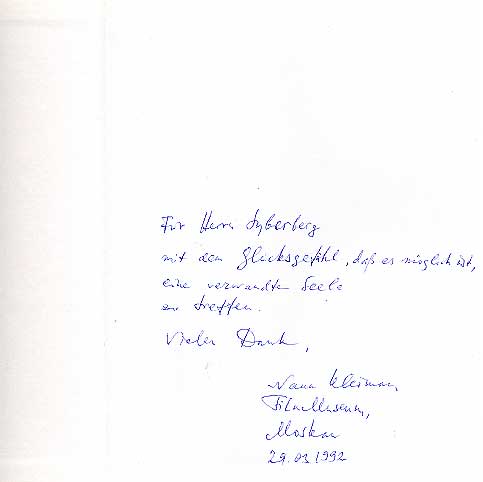 Für Herrn Syberberg
mit dem Glücksgefühl, daß es möglich ist,
eine verwandte Seele
zu treffen.
Vielen Dank,
Naum Kleiman,
Filmmuseum,
Moskau
29.03.1992